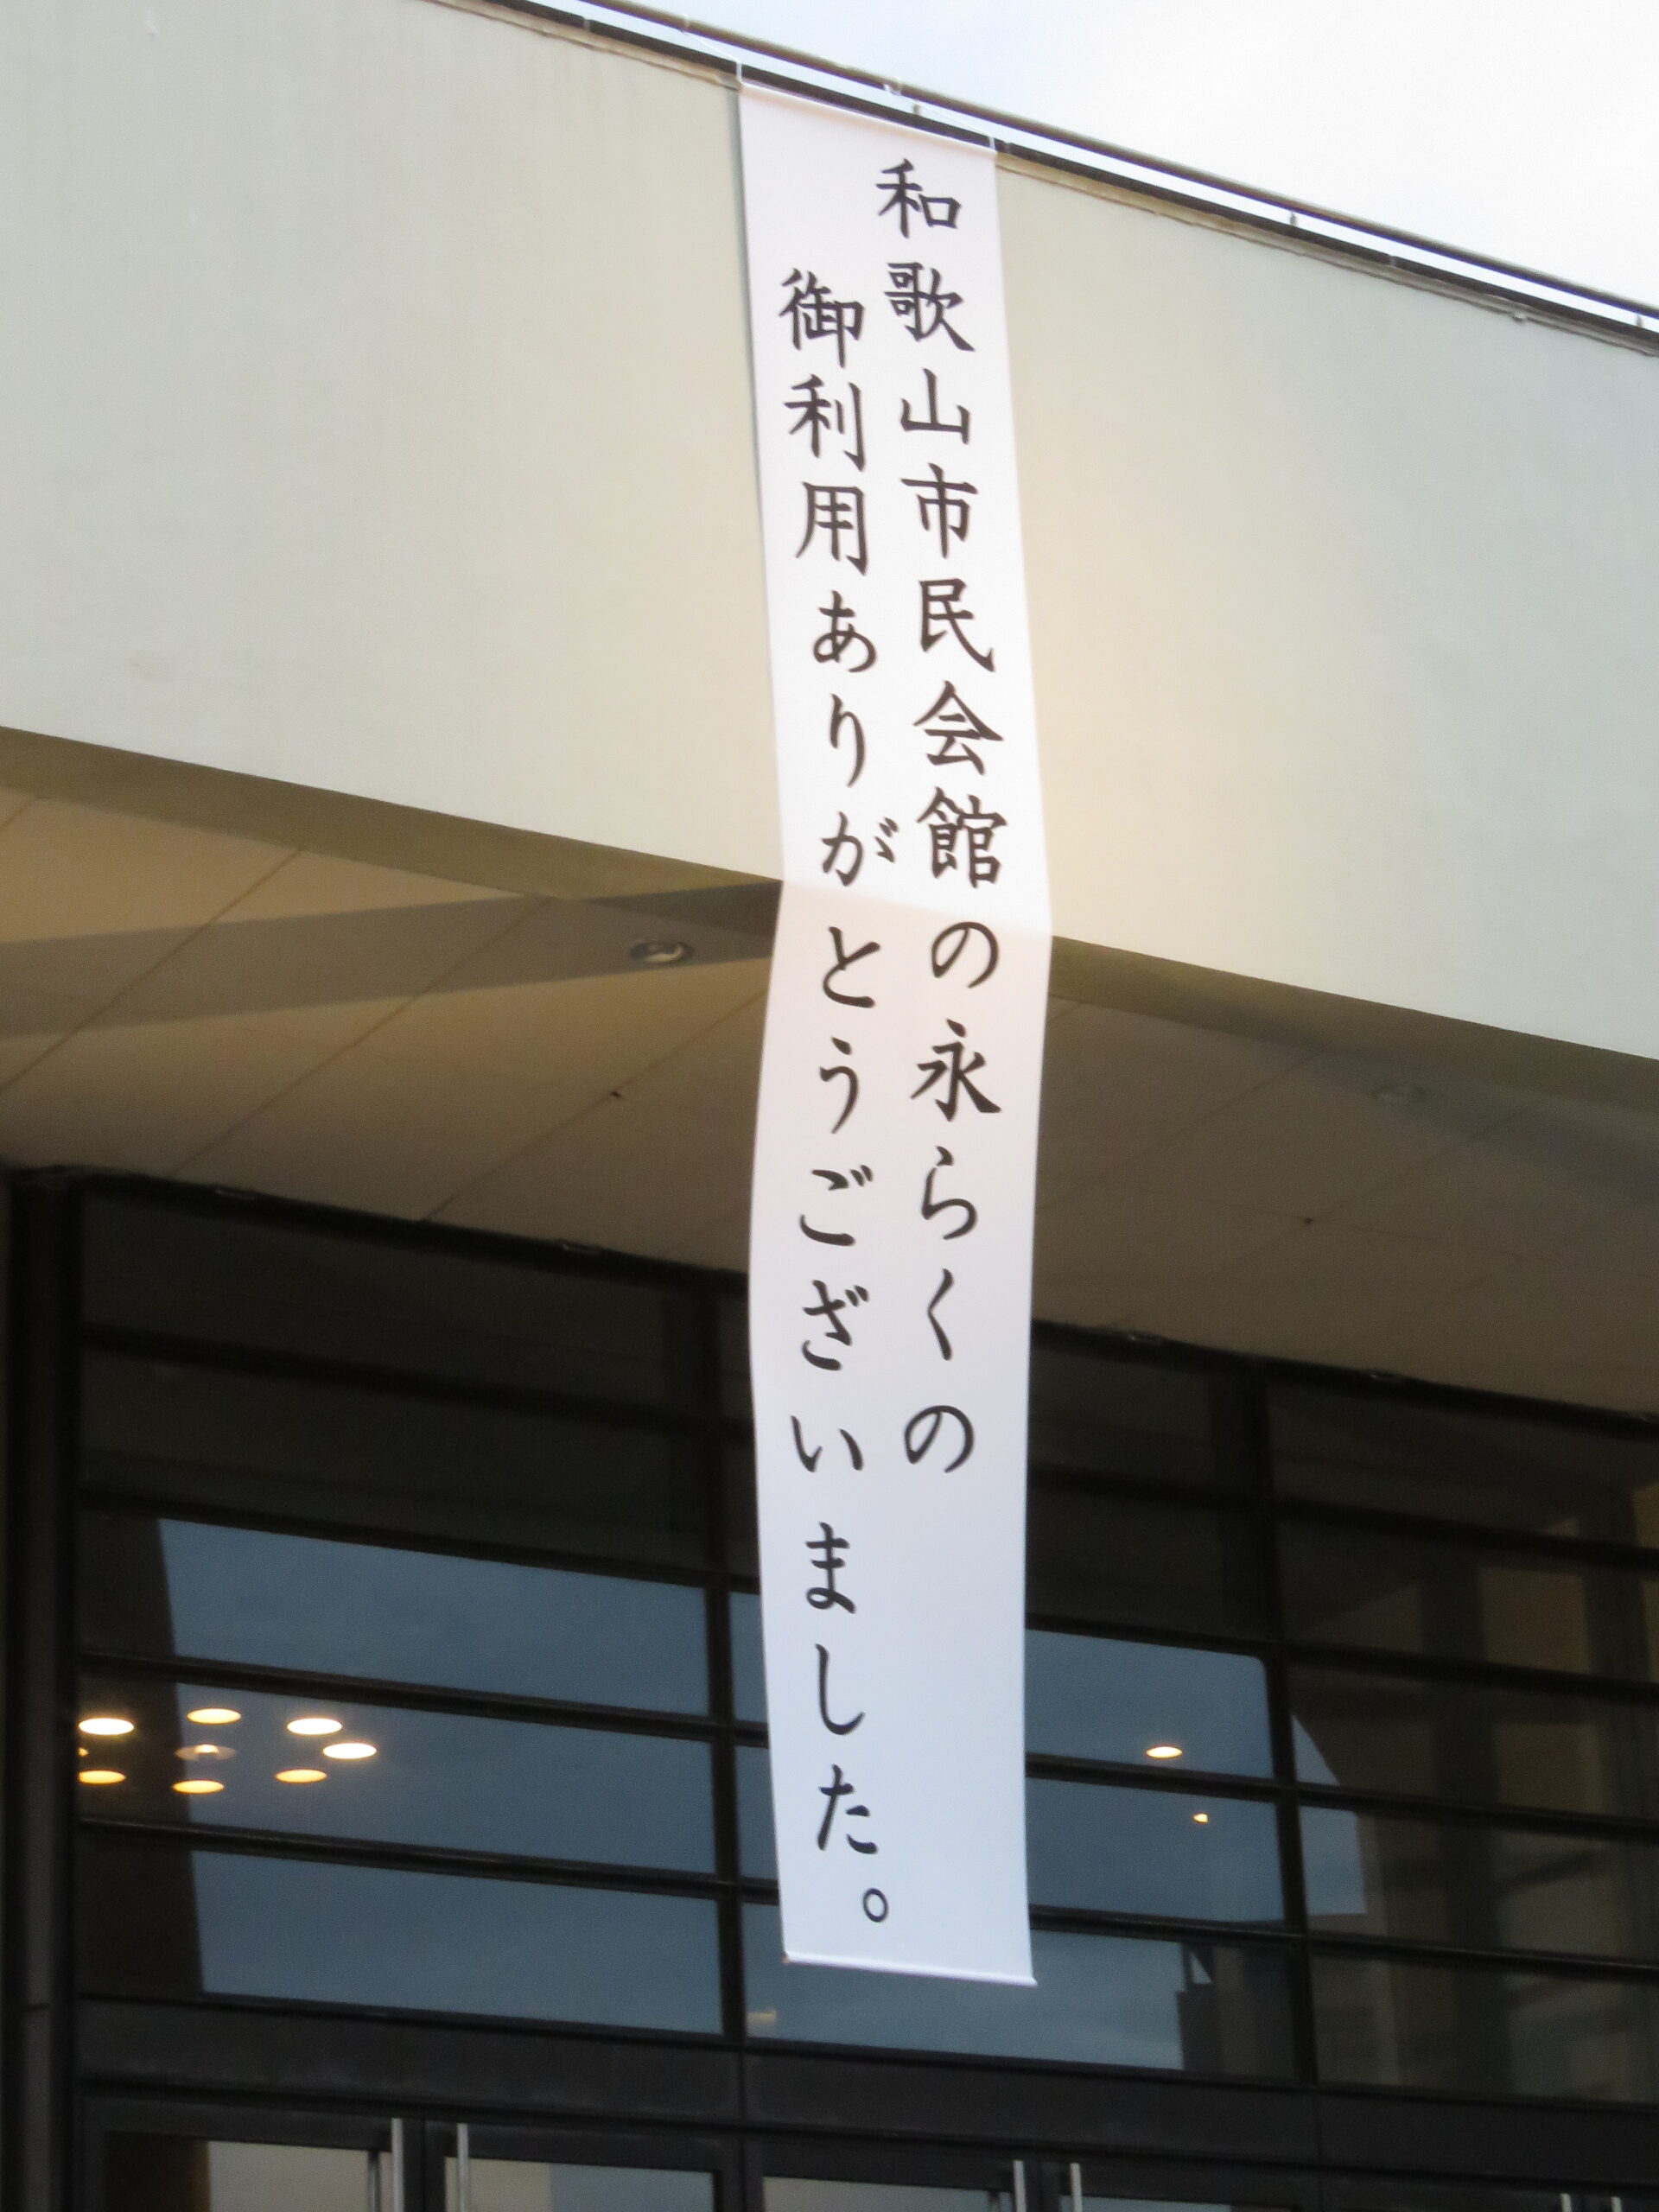 和歌山市民会館の永らくの
御利用ありがとうございました。